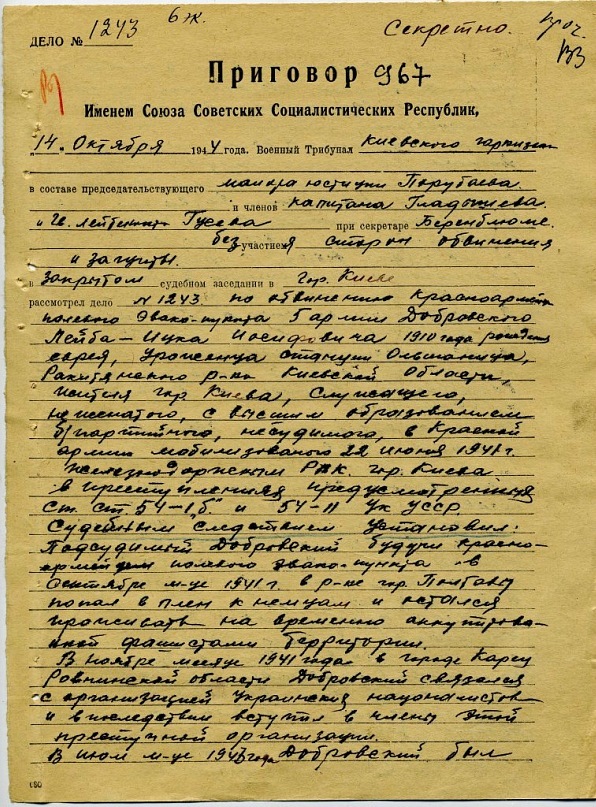 6ж.
Секретно.
ДЕЛО № 1243
Приговор 967
Именем Союза Советских Социалистических Республик,
"14" Октября 1944 года. Военный Трибунал Киевского гарнизона
в составе председательствующего майора юстиции Порубаева
и членов капитана Гладышева
и Гв. лейтенанта Гусева при секретаре Беренблюме.
без участием сторон обвинения
и защиты.
в закрытом судебном заседании в гор. Киеве
рассмотрел дело № 1243 по обвинению Красноармейца
полевого Эвако-пункта 5 армии Добровского
Лейба-Ицка Иосифовича 1910 года рождения
еврея, уроженца станции Ольшаница,
Ракитянского р-на Киевской области,
жителя гор. Киева, служащего,
неженатого, с высшим образованием
б/партийного, несудимого, в Красной
армии мобилизованого 22 июня 1941 г.
Железнодорожским РВК гор. Киева
в преступлениях предусмотренных
ст. ст. 54-1 "б" и 54-11 УК УССР.
Судебным следствием установил:
Подсудимый Добровский будучи красно-
армейцем полевого эвако-пункта в
сентябре м-це 1941 г. в р-не гор. Полтавы
попал в плен к немцам и остался
проживать на временно аккупирова-
нной фашистами территории.
В ноябре месяце 1941 года в городе Карец
Ровнинской области Добровский связался
с организацией Украинских националистов
и впоследствии вступил в члены этой
преступной организации.
В июле м-це 1943 года Добровский был